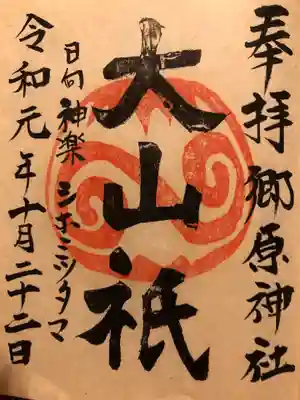 奉拝郷原神社
大山祇
日向神楽シホミツタマ
令和元年十月二十二日